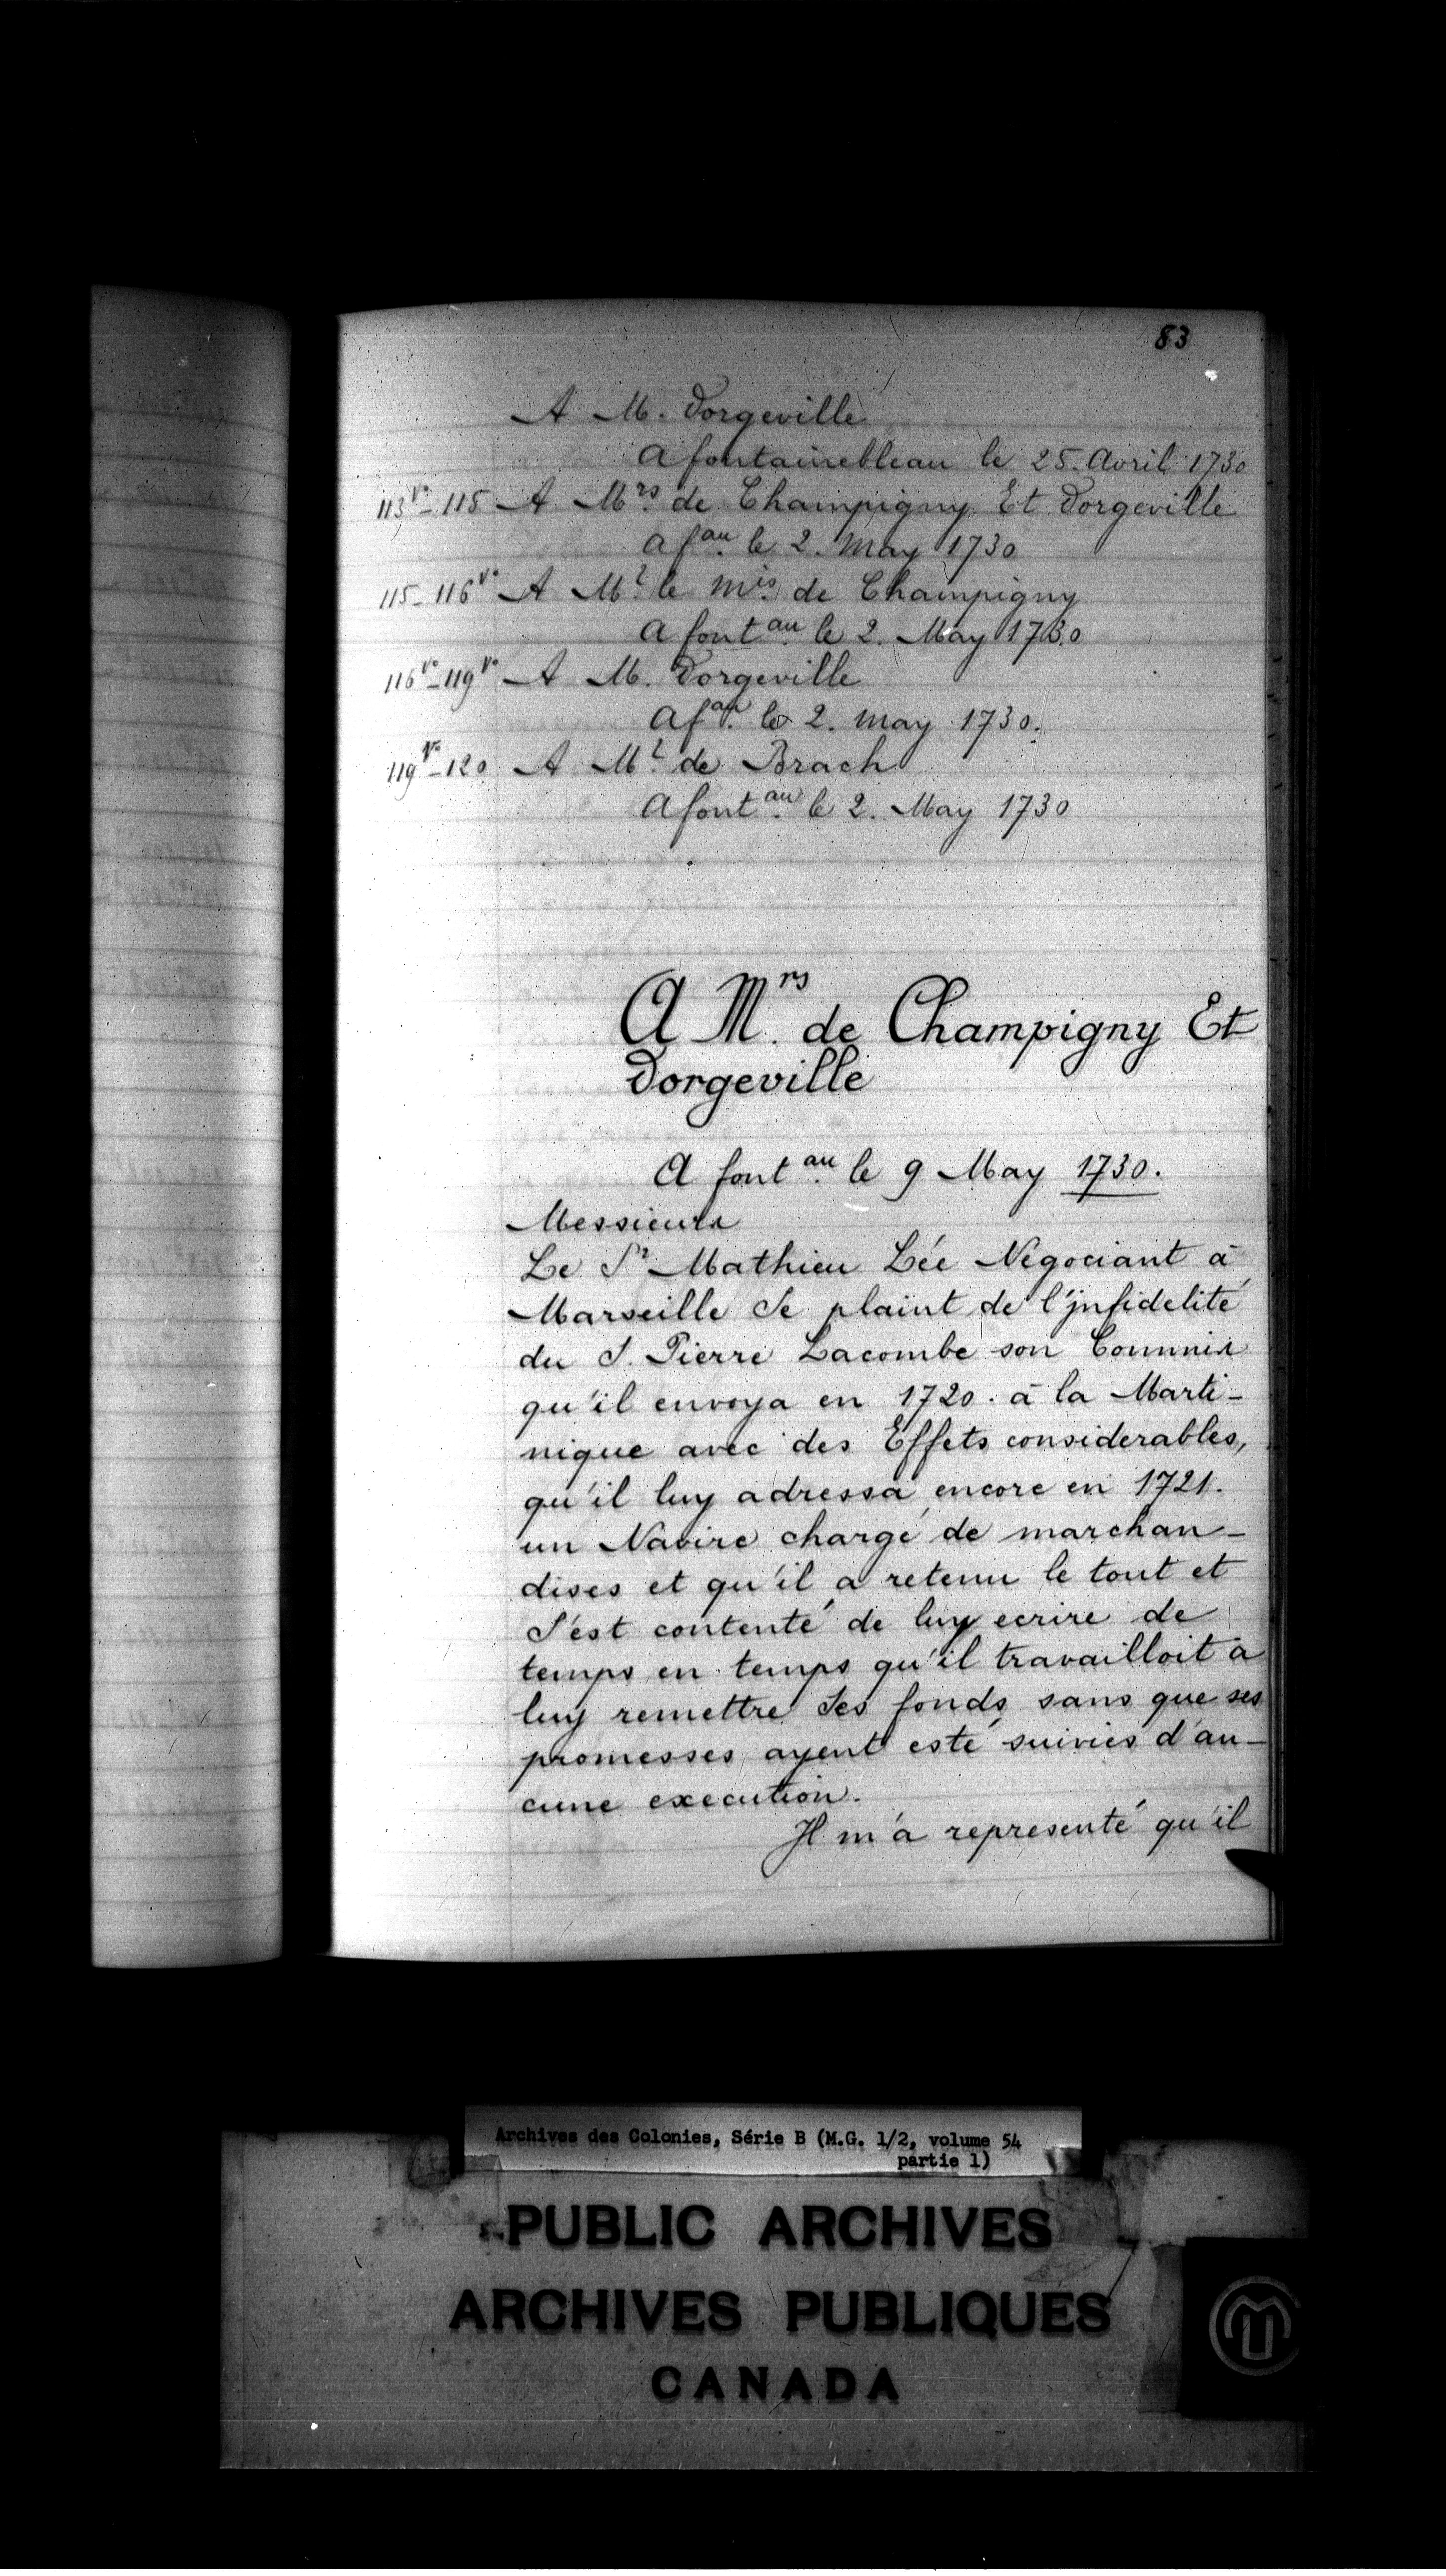 83
A M. Dorgeville
A fontainebleau le 25. Avril 1730
113 vo - 115 A Mrs. de Champigny Et Dorgeville
A fau. le 2. May 1730
115 - 116 vo A Mr. le Mis. de Champigny
A fontau. le 2. May 1730
116 vo - 119 vo A M. Dorgeville
A fau. le 2. May 1730.
119 vo - 120 A Mr. de Brach
A fontau. le 2. May 1730
A Mrs. de Champigny Et
Dorgeville
A fontau. le 9 May 1730.
Messieurs
Le Sr Mathieu Lée Négociant à
Marseille Se plaint de l'jnfidelité
du S. Pierre Lacombe son Commis
qu'il envoya en 1720. à la Marti-
nique avec des Effets considerables,
qu'il luy adressa encore en 1721.
un Navire chargé de marchan-
dises et qu'il a retenu le tout et
S'est contenté de luy ecrire de
temps en temps qu'il travailloit à
luy remettre Ses fonds sans que ses
promesses ayent esté suivies d'au-
cune execution.
Il m'a representé qu'il
Archives des Colonies, Série B (M.G. 1/2, volume 54
partie 1)
PUBLIC ARCHIVES
ARCHIVES PUBLIQUES
CANADA